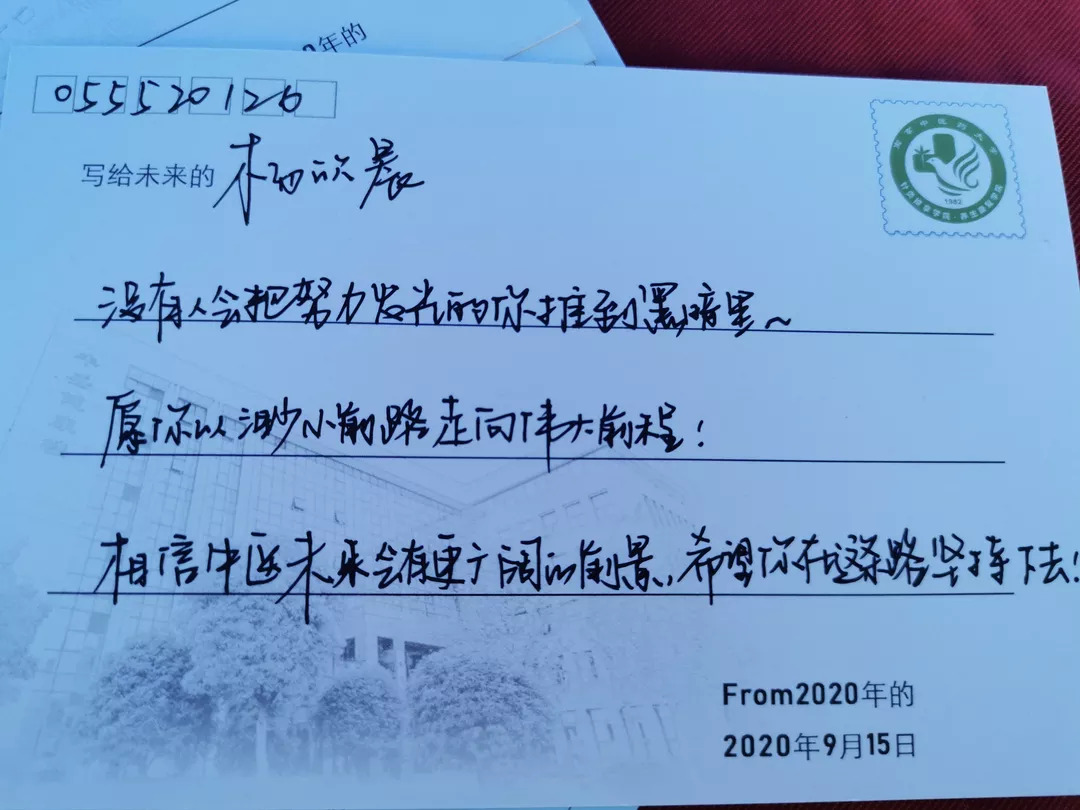 0年的
055520126
写给未来的 杨欣晨
南京中医药大学
针灸推拿学院·养生康复学院
1982
没有人会把努力发光的你推到黑暗里~
愿你以渺小前路走向伟大前程!
相信中医未来会有更广阔的前景,希望你在这条路坚持下去!
From2020年的
2020年9月15日